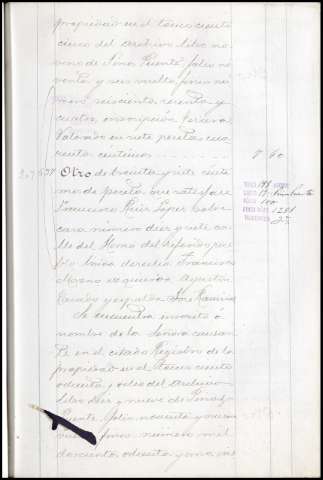 propiedad en el tomo ciento
cinco del archivo libro no
veno de Pinos Puente folio no
venta y seis vuelto finca nú
mero seiscientos
cuatro, inscripción tercera
Valorado en siete pesetas cua
renta céntimos
7 40
Otro de treinta y siete cente
mos de peseta que satisface
Francisco Ruiz Lopez sobre
casa número diez y siete ca
lle del Horno del referido pue
blo linda derecha Francisco
Moreno izquierda Agustin
y espalda José Ramirez
Se encuentra inscrito á
nombre de la Señora causan
te en el citado Registro de la
propiedad en el tomo ciento
ochenta y ocho del archivo
libro diez y nueve de Pinos
Puente, folio noventa y nueve
vuelto finca número mil
doscientos ochenta y una ins